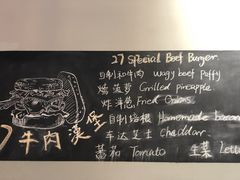 27 Special Beef Burger
自制和牛肉 Wagy beef Patty
烤菠萝 Grilled pineapple
炸洋葱 Fried Onions
自制培根 Homemade banana
车达芝士 Chaddar
蕃茄 Tomato 生菜 Lett
牛肉漢堡